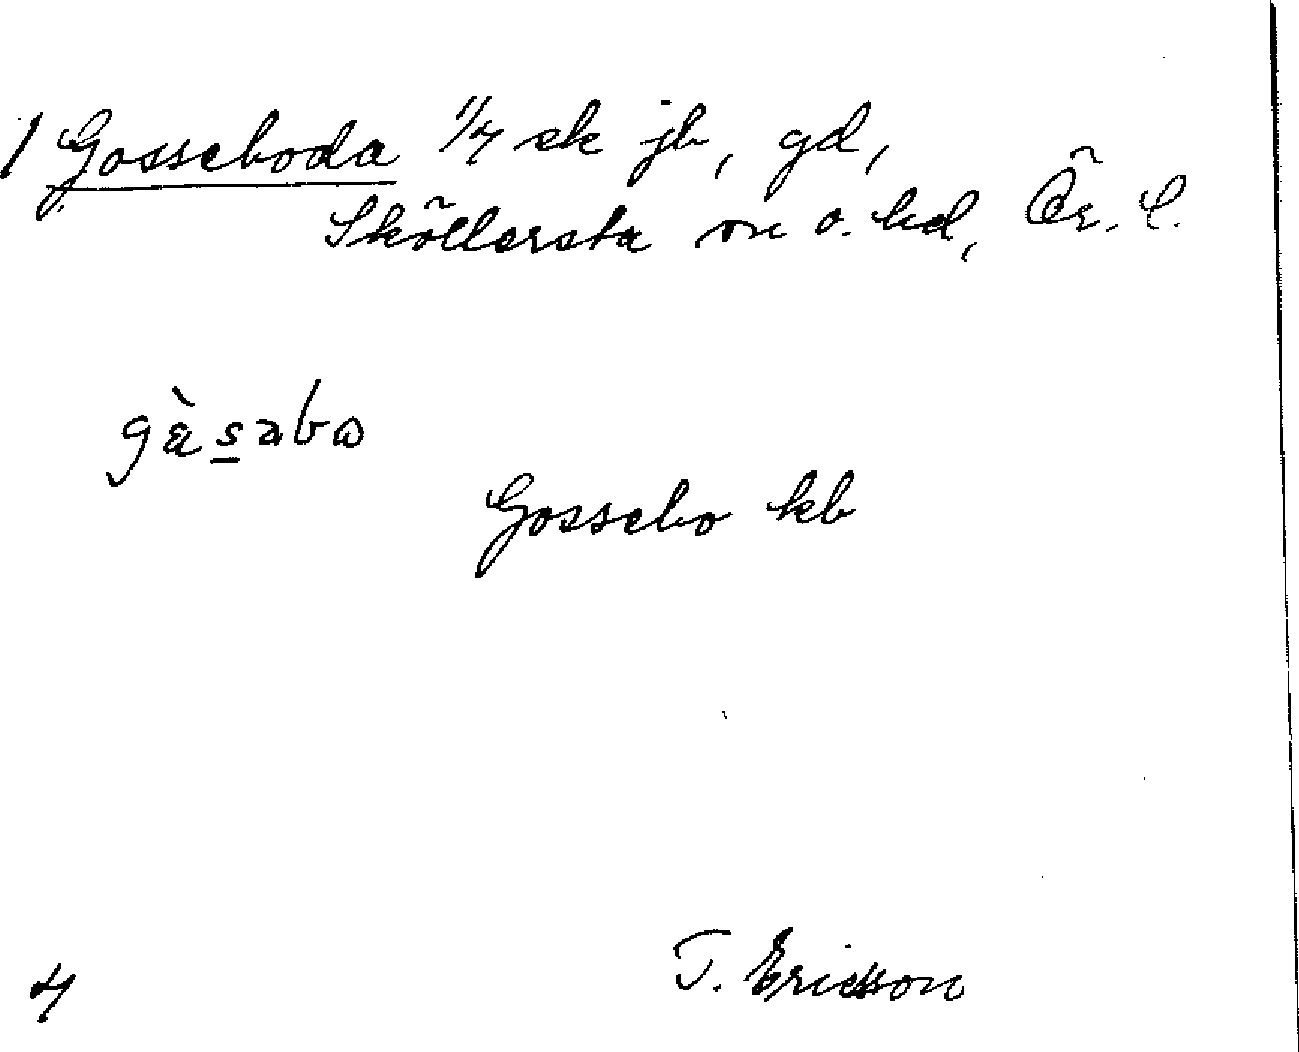 1 Gosseboda 1/4 sk jb, gd,
Sköllersta sn o. hd, Ör. l.
gàsəbo
Gossebo kb
4
T. Ericsson